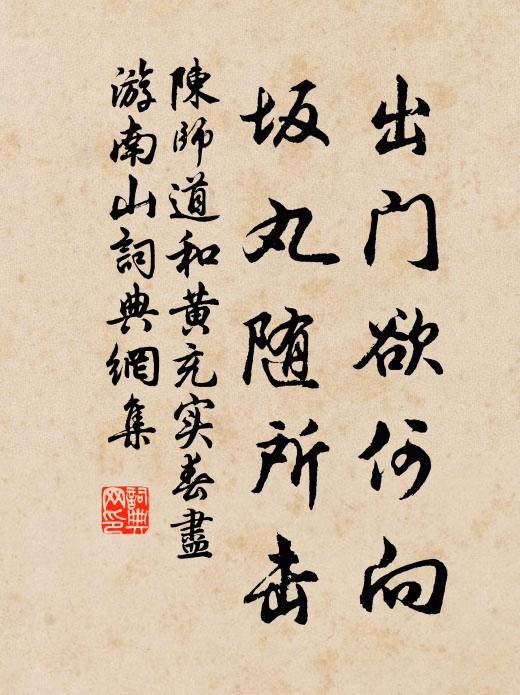 出门欲何向
坂丸随所击
陳師道和黄充实春盡
游南山詞典網集
詞典
网印